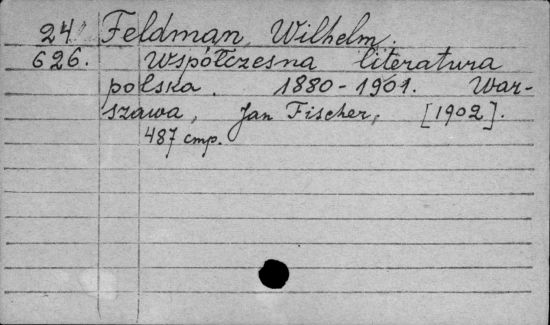 24 Feldman, Wilhelm.
626. Współczesna literatura
polska. 1880-1901. War-
szawa, Jan Fischer, [1902].
487 стр.